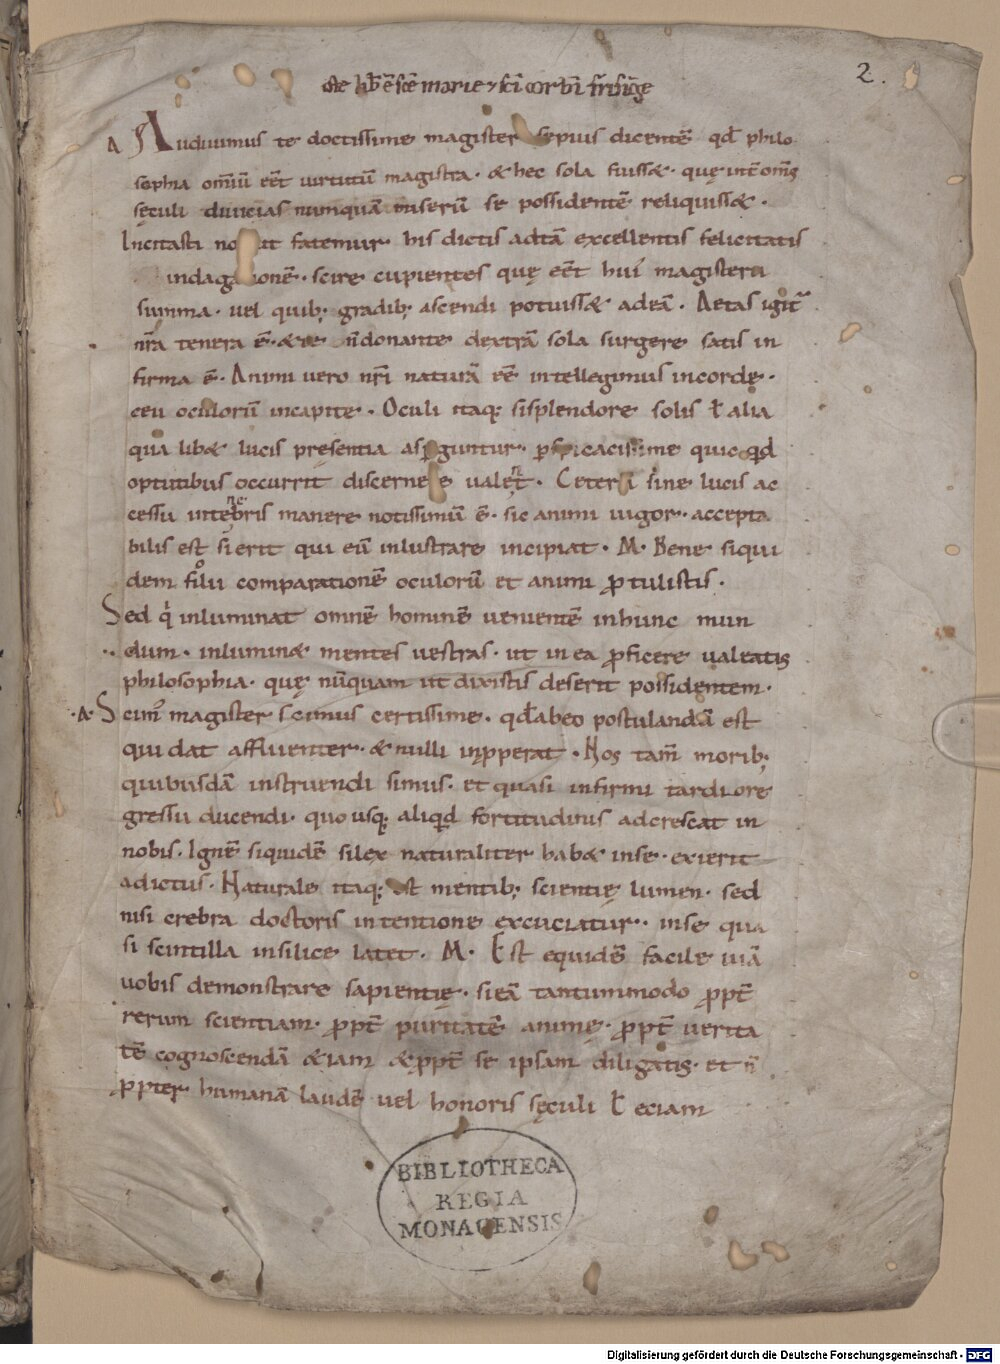 2.
Iste lib̄ ē scē marie ⁊ sc̄i Corbī frisīge
A Audiuimus te doctissime magister sepius dicentē qd̄ philo
sophia omniū eēt uirtutū magistra · & hec sola fuiss& · quę int̄ om̄s
sęculi diuicias numquā miserū se possidentē reliquiss& ·
Incitasti nos ut fatemur his dictis ad tā excellentis felicitatis
indagationē · scire cupientes quę eēt hui' magisterii
summa · uel quib; gradib; ascendi potuiss& ad eā · Aetas igit̄
nr̄a tenera ē · & te n̄ donante dextrā sola surgere satis in
firma ē · Animi uero nr̄i naturā eē intellegimus in corde ·
ceu oculorū in capite · Oculi itaq; si splendore solis ł alia
qua lib& lucis pręsentia asperguntur · perspicacissime quicqd
optutibus occurrit discernere ualent · Ceterū sine lucis ac
cessu in tenebris manere notissimū ē · sic animi uigor · accepta
bilis est si erit qui eū inlustrare incipiat · M · Bene siqui
dem filii comparationē oculorū et animi protulistis ·
Sed qi inluminat omnē hominē uenientē in hunc mun
dum · inlumin& mentes uestras · ut in ea proficere ualeatis
philosophia · quę nūquam ut dixistis deserit possidentem ·
· A · Scim' magister scimus certissime · qd̄ ab eo postulandū est
qui dat affluenter · & nulli inpperat · Nos tam̄ morib;
quibusdā instruendi simus · et quasi infirmi tardiore
gressu ducendi · quo usq; aliqd fortitudinis adcrescat in
nobis · Ignē siquidē silex naturaliter hab& in se · exierit
ad ictus · Naturale itaq; est mentib; scientię lumen · sed
nisi crebra doctoris intentione excuciatur · in se qua
si scintilla in silice latet · M · Est equidē facile uiā
uobis demonstrare sapientię · si eā tantummodo ppt̄
rerum scientiam · ppt̄ puritatē animę · ppt̄ uerita
tē cognoscendā &iam & ppt̄ se ipsam diligatis · et n̄
ppter humanā laudē uel honoris sęculi ł eciam
BIBLIOTHECA
REGIA
MONACENSIS
Digitalisierung gefördert durch die Deutsche Forschungsgemeinschaft - DFG